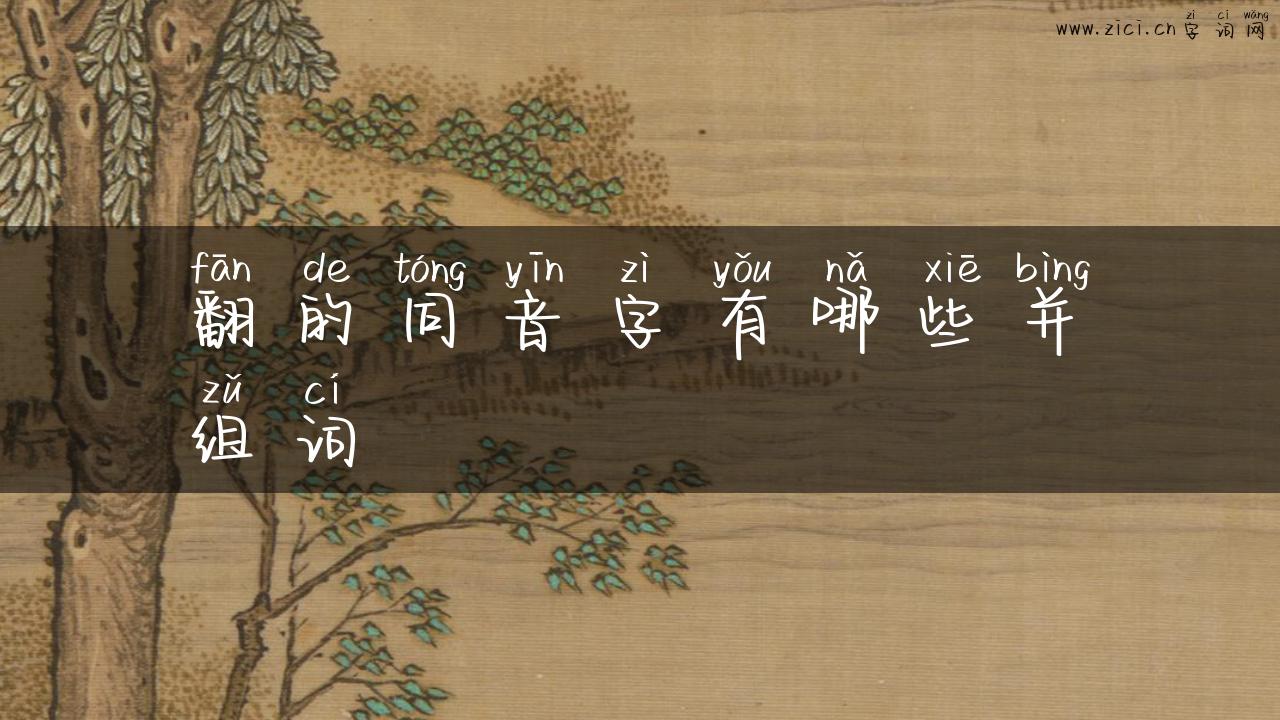 zì cí wǎng
www.zici.cn 字词网
fān de tóng yīn zì yǒu nǎ xiē bìng
翻的同音字有哪些并
zǔ cí
组词